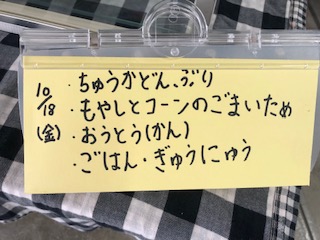 10/18(金)
・ちゅうかどんぶり
・もやしとコーンのごまいため
・おうとう(かん)
・ごはん・ぎゅうにゅう